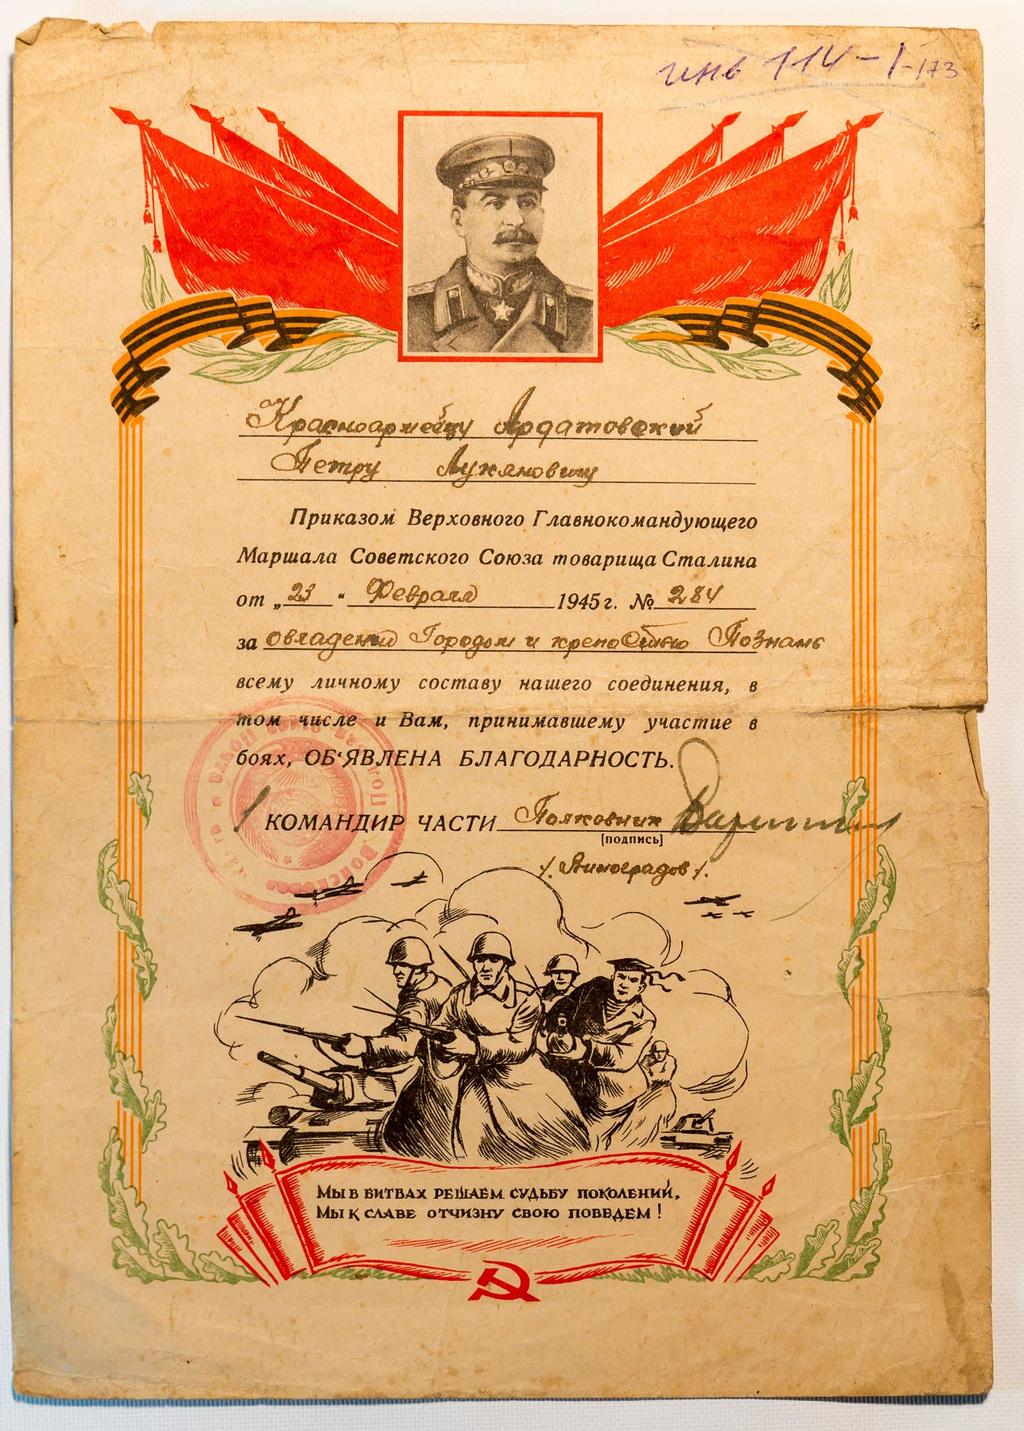 инв 114-1-173
Красноармейцу Ардатовский
Петру Лукяновичу
Приказом Верховного Главнокомандующего
Маршала Советского Союза товарища Сталина
от „23“ Февраля 1945 г. № 284
за овладений Городом и крепостью Познань
всему личному составу нашего соединения, в
том числе и Вам, принимавшему участие в
боях, ОБ‘ЯВЛЕНА БЛАГОДАРНОСТЬ.
КОМАНДИР ЧАСТИ Полковник
[подпись]
/. Виноградов /.
МЫ В БИТВАХ РЕШАЕМ СУДЬБУ ПОКОЛЕНИЙ,
МЫ К СЛАВЕ ОТЧИЗНУ СВОЮ ПОВЕДЕМ!